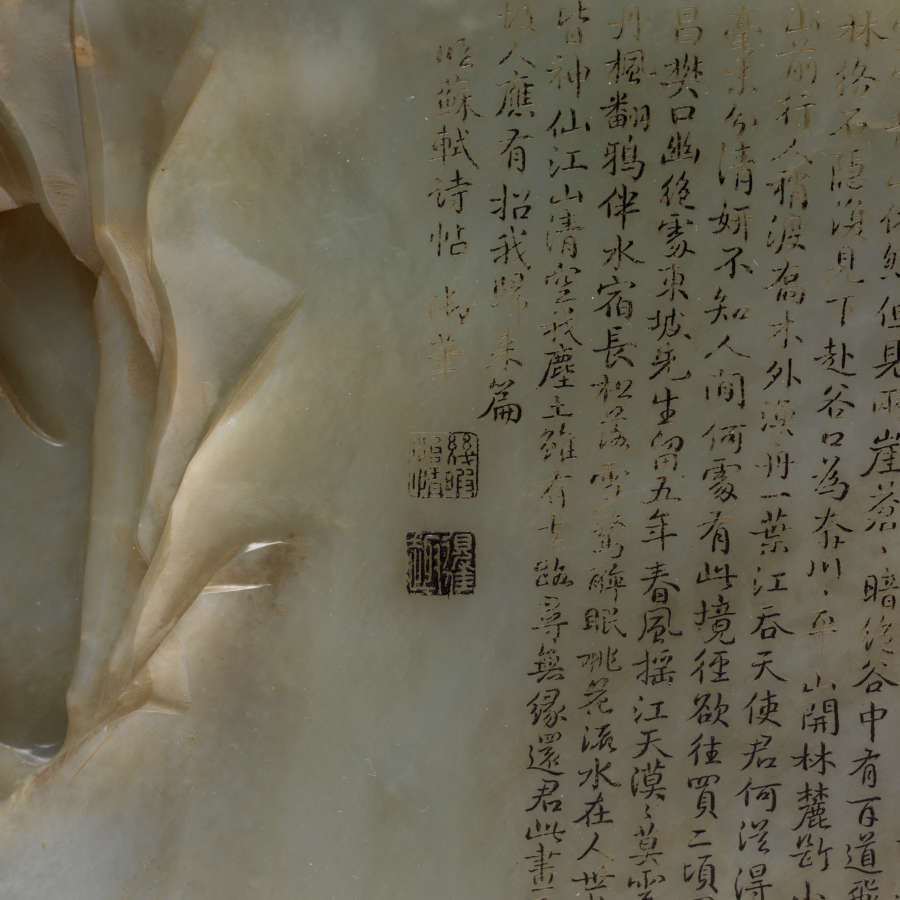 山依然但見兩崖蒼〻暗絕谷中有百道飛
林絡石隱復見下赴谷口為奔川〻平山開林麓斷小
山前行人稍渡喬木外漁舟一葉江吞天使君何從得
毫末分清妍不知人間何處有此境徑欲往買二頃
昌樊口幽絕處東坡先生留五年春風搖江天漠〻莫雲
丹楓翻鴉伴水宿長松落雪驚醉眠桃花流水在人世
皆神仙江山清空我塵土雖有去路尋無緣還君此畫
故人應有招我歸來篇
臨蘇軾詩帖 御筆
幾暇怡情
得佳趣